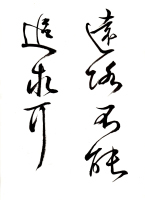 遠路不能
追求可